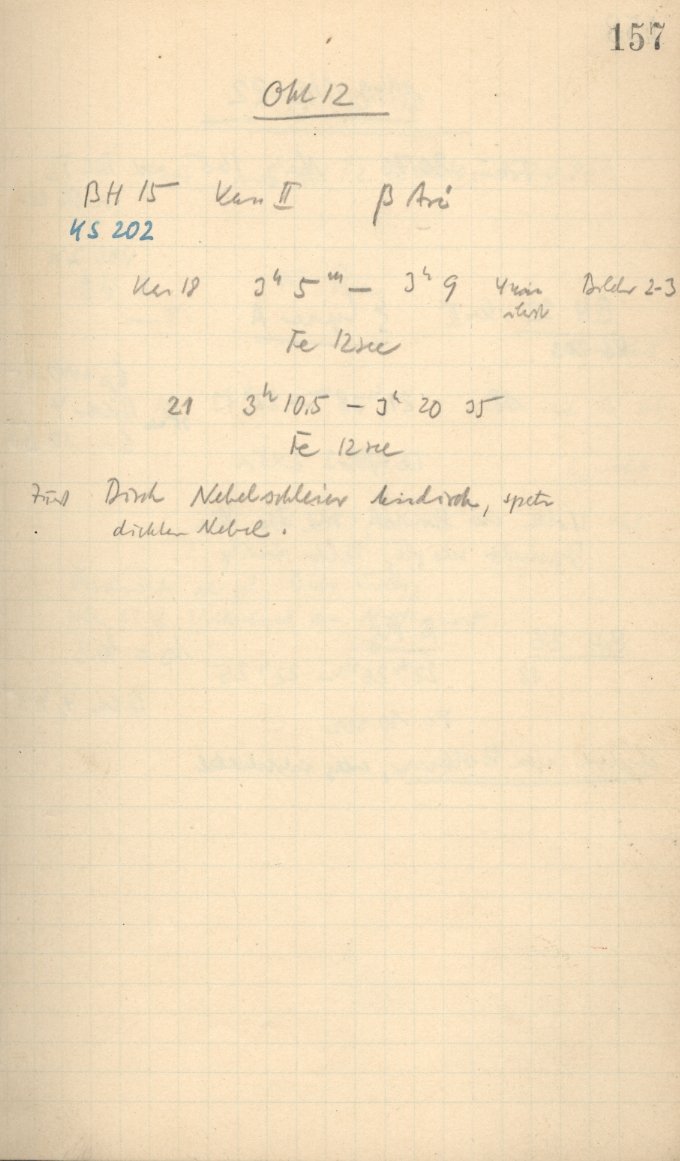 157
Okt 12
BH 15 Kass II β Ari
KS 202
Kas 18 3h 5m — 3h 9 4 min Bilder 2-3
Fe 12 sec
21 3h 10.5 — 3h 20 35
Fe 12 sec
Dirch Nebelschleier hindirch,
dichter Nebel.